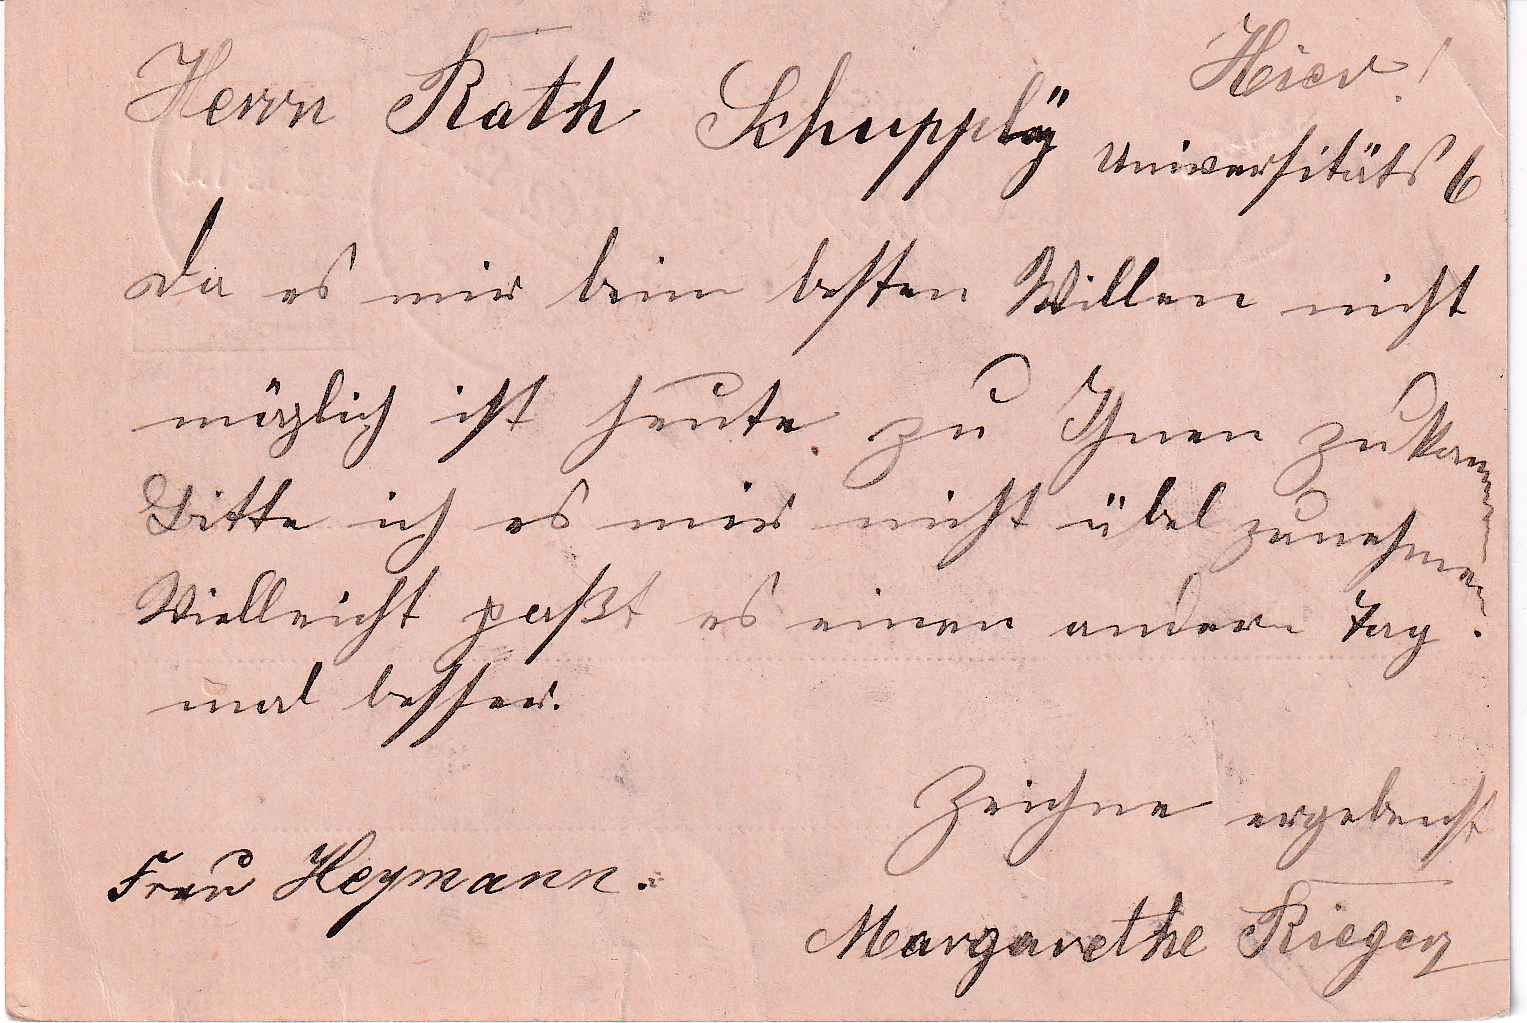 Hier!
Herrn Rath Schupply
Universitäts 6
Da es mir beim besten Willen nicht
möglich ist heute zu Ihnen zu kommen
Bitte ich es mir nicht übel zunehmen.
Vielleicht paßt es einen andern Tag
mal besser.
Zeichne ergebenst
Frau Heymann.
Margarethe Rieger